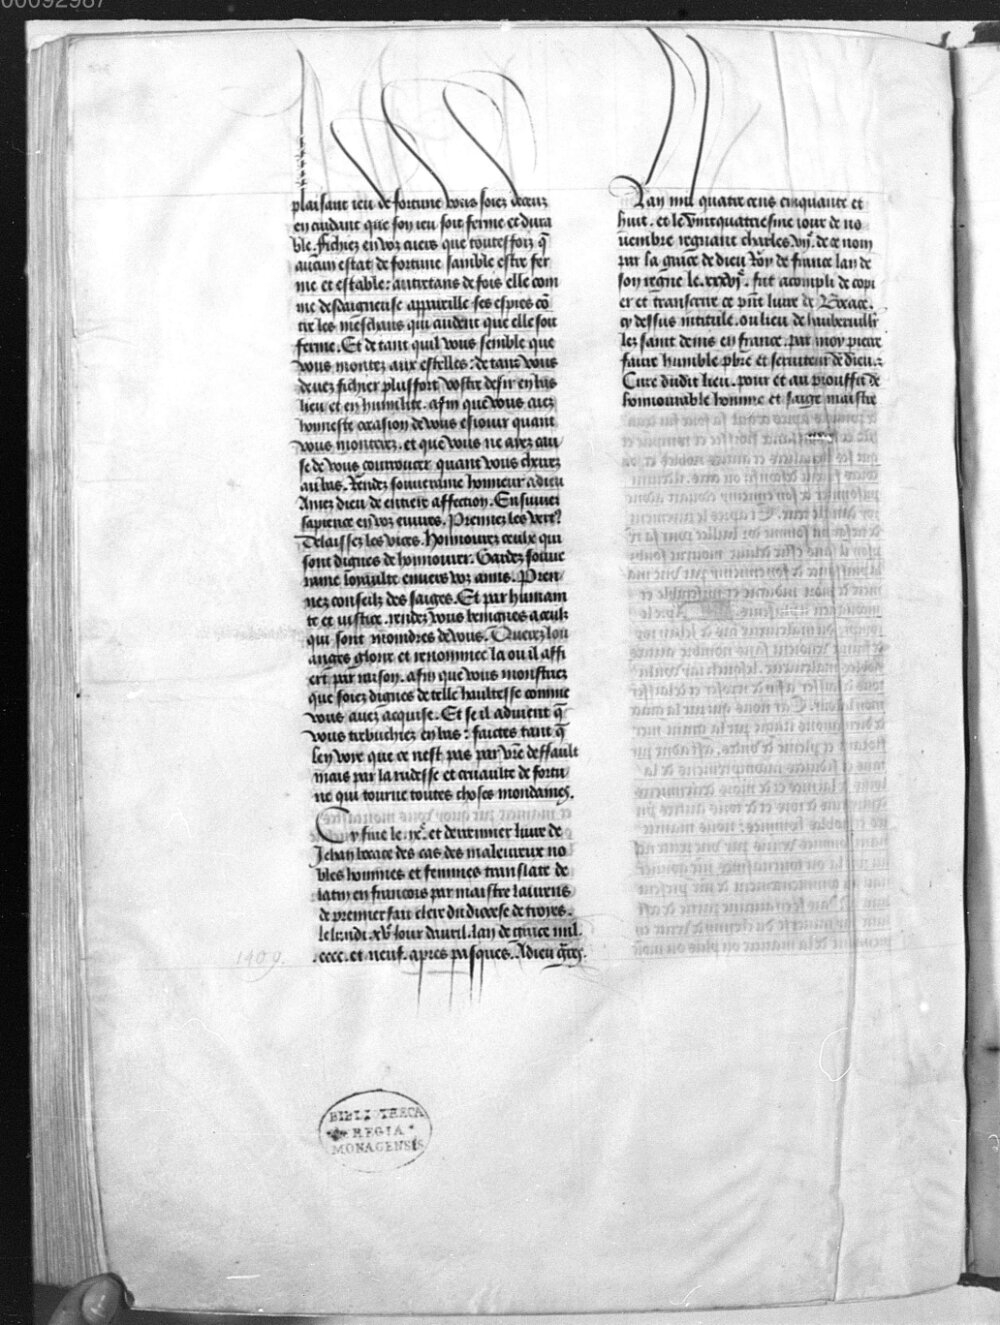 00092987
plaisant ieu de fortune vous soiez deceuz
en cuidant que son ieu soit ferme et dura
ble. fichiez en voz cuers que toutesfoiz q̃
aucun estat de fortune samble estre fer
me et estable: autretans de fois elle com
me desdaigneuse appareille ses espies cõ
tre les meschans qui cuident que elle soit
ferme. Et de tant quil vous semble que
vous montez aux estelles: de tant vous
deuez fichier plus fort vostre desir en bas
lieu et en humilite. afin que vous aiez
honneste occasion de vous esiouir quant
vous monterez. et que vous ne ayez cau
se de vous courroucer quant vous cherrez
au bas. Rendez souueraine honneur a dieu
Amez dieu de entiere affection. Ensuiuez
sapience en voz euures. Prennez les vertꝰ
Delaissez les vices. Honnourez ceulx qui
sont dignes de honnourer. Gardez souue
raine loyaulte enuers voz amis. Pren
nez conseilz des saiges. Et par humani
te et iustice. rendez vous benignes a ceulx
qui sont moindres de vous. Querez lou
anges gloire et renommee la ou il affi
ert par raison. afin que vous monstrez
que soiez dignes de telle haultesse comme
vous auez acquise. Et se il aduient q̃
vous trebuchiez en bas: faictes tant q̃
len voye que ce nest pas par vr̃e deffault
mais par la rudesse et cruaulte de fortu
ne qui tourne toutes choses mondaines.
Cy fine le .ixe. et derrennier liure de
Jehan bocace des cas des maleureux no
bles hommes et femmes translate de
latin en francois par maistre laurens
de premierfait clerc du diocese de troyes.
le lundi .xve. iour dauril. lan de grace mil.
.cccc. et neuf. apres pasques. Adieu grãs.
1409.
Lan mil quatre cens cinquante et
huit. et le vint quatriesme iour de no
uembre regnant charles .vije. de ce nom
par la grace de dieu Roy de france lan de
son regne le .xxxvje. fut acompli de copi
er et transcrire ce pñt liure de Bocace.
cy dessus intitule. ou lieu de haubertuilli
lez saint denis en france. par moy pierre
faure humble pb̃re et seruiteur de dieu.
Cure dudit lieu. pour et au prouffit de
honnourable homme et saige maistre
BIBLIOTHECA
REGIA
MONACENSIS